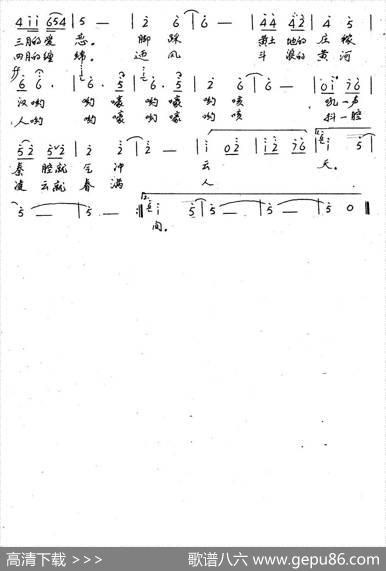 4 i i 6 5 4 | 5 — | 2 6 | 6 — | 4 4 4 2 | 4 5 |
三月的 脚踩 黄土地的庄稼
四月的缠绵。 迎风 斗浪的黄河
ff
6 6. | 6. 5 | 6. 5 | 2 6 | 6 — | 0 i 7 6 |
汉哟 哟嚎哟嚎哟咳 吼一声
人哟 哟嚎哟嚎哟咳 抖一腔
5 2 5 2 | 2 2 | 2 — | i 0 2 | i 2 7 6 | i 5 |
秦腔就 冲 云 天。
凌云就春满 人
5 — | 5 — :‖ i 5 | 5 — | 5 — | 5 0 ‖
间。
高清下载 >>>
歌谱八六 www.gepu86.com